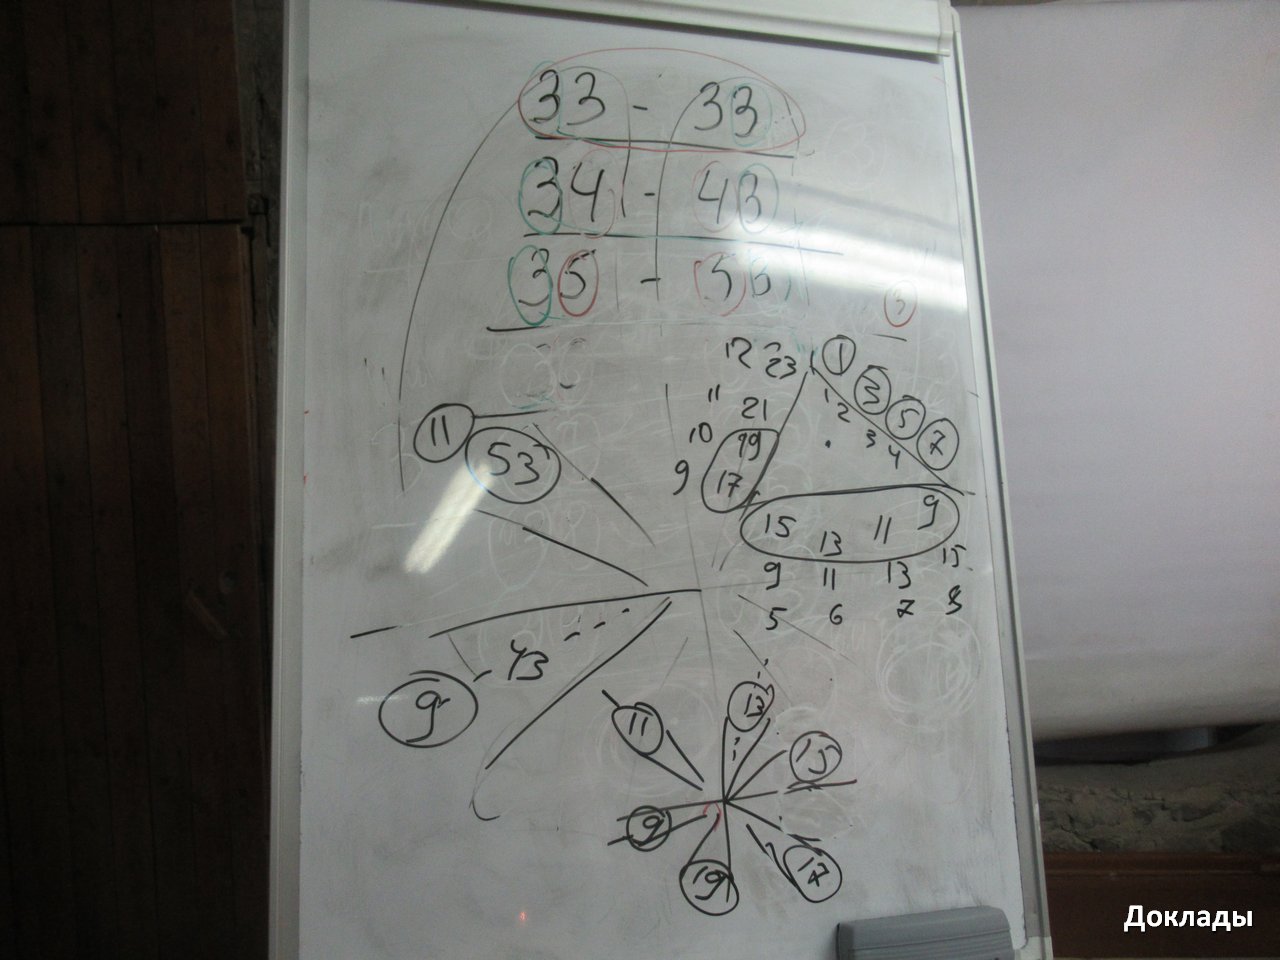 33 - 33
34 - 43
35 - 53
3
12 23 1
3
11 21 1 2 5
10 19 3 7
9 17 4
15 13 11 9
9 11 13 15
5 6 7 8
11
53
43
9
11 13
15
9
19 17
Доклады